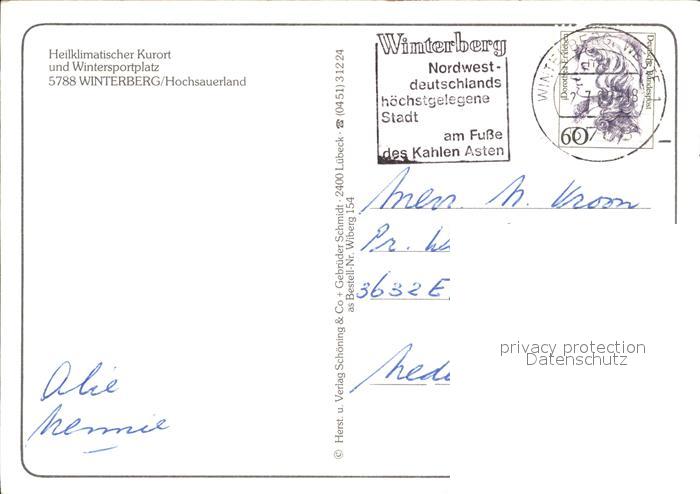 Heilklimatischer Kurort
und Wintersportplatz
5788 WINTERBERG/Hochsauerland
Winterberg
Nordwest-
deutschlands
höchstgelegene
Stadt
am Fuße
des Kahlen Asten
Dorothea Erxleben
Deutsche Bundespost
60
© Herst. u. Verlag Schöning & Co + Gebrüder Schmidt · 2400 Lübeck · ☎ (04 51) 3 12 24
as Bestell-Nr. Wiberg 154
N. Kroon
Pr.
3632 E
privacy protection
Datenschutz
Alie
Mennie